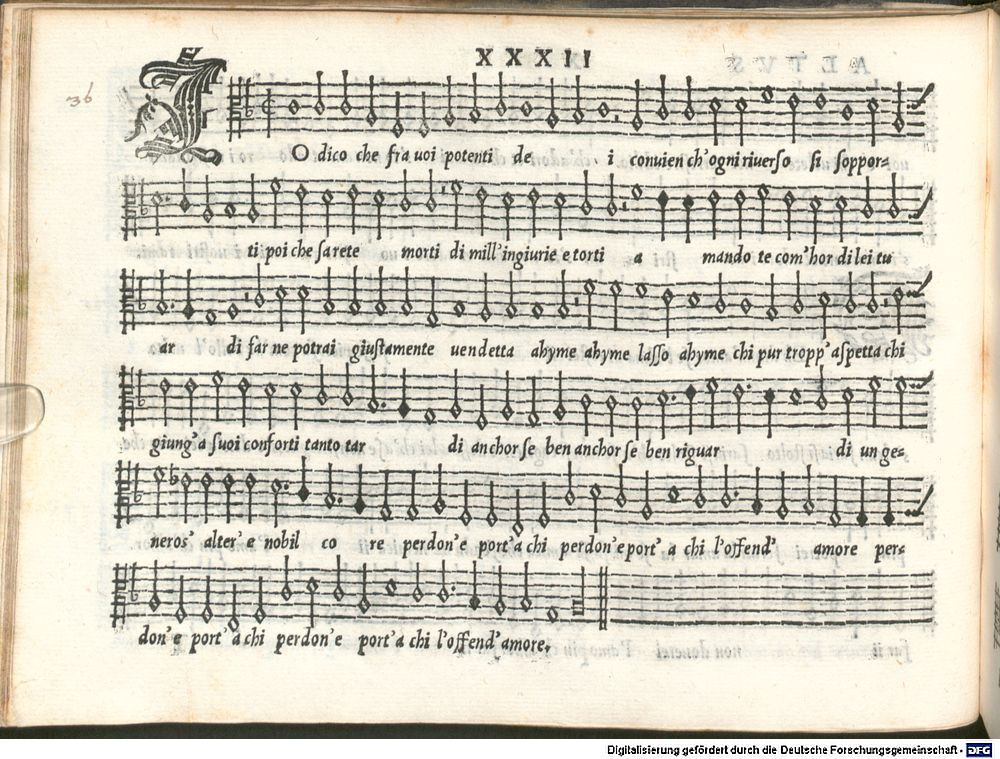 XXXII
36
IO dico che fra uoi potenti de i conuien ch'ogni riuerso si soppor=
ti poi che sarete morti di mill'ingiurie e torti a mando te com'hor di lei tu
ar di far ne potrai giustamente uendetta ahyme ahyme lasso ahyme chi pur tropp'aspetta chi
giung'a suoi conforti tanto tar di anchor se ben anchor se ben riguar di un ge=
neros' alter'e nobil co re perdon'e port'a chi perdon'e port' a chi l'offend' amore per=
don'e port'a chi perdon'e port'a chi l'offend'amore.
Digitalisierung gefördert durch die Deutsche Forschungsgemeinschaft - DFG